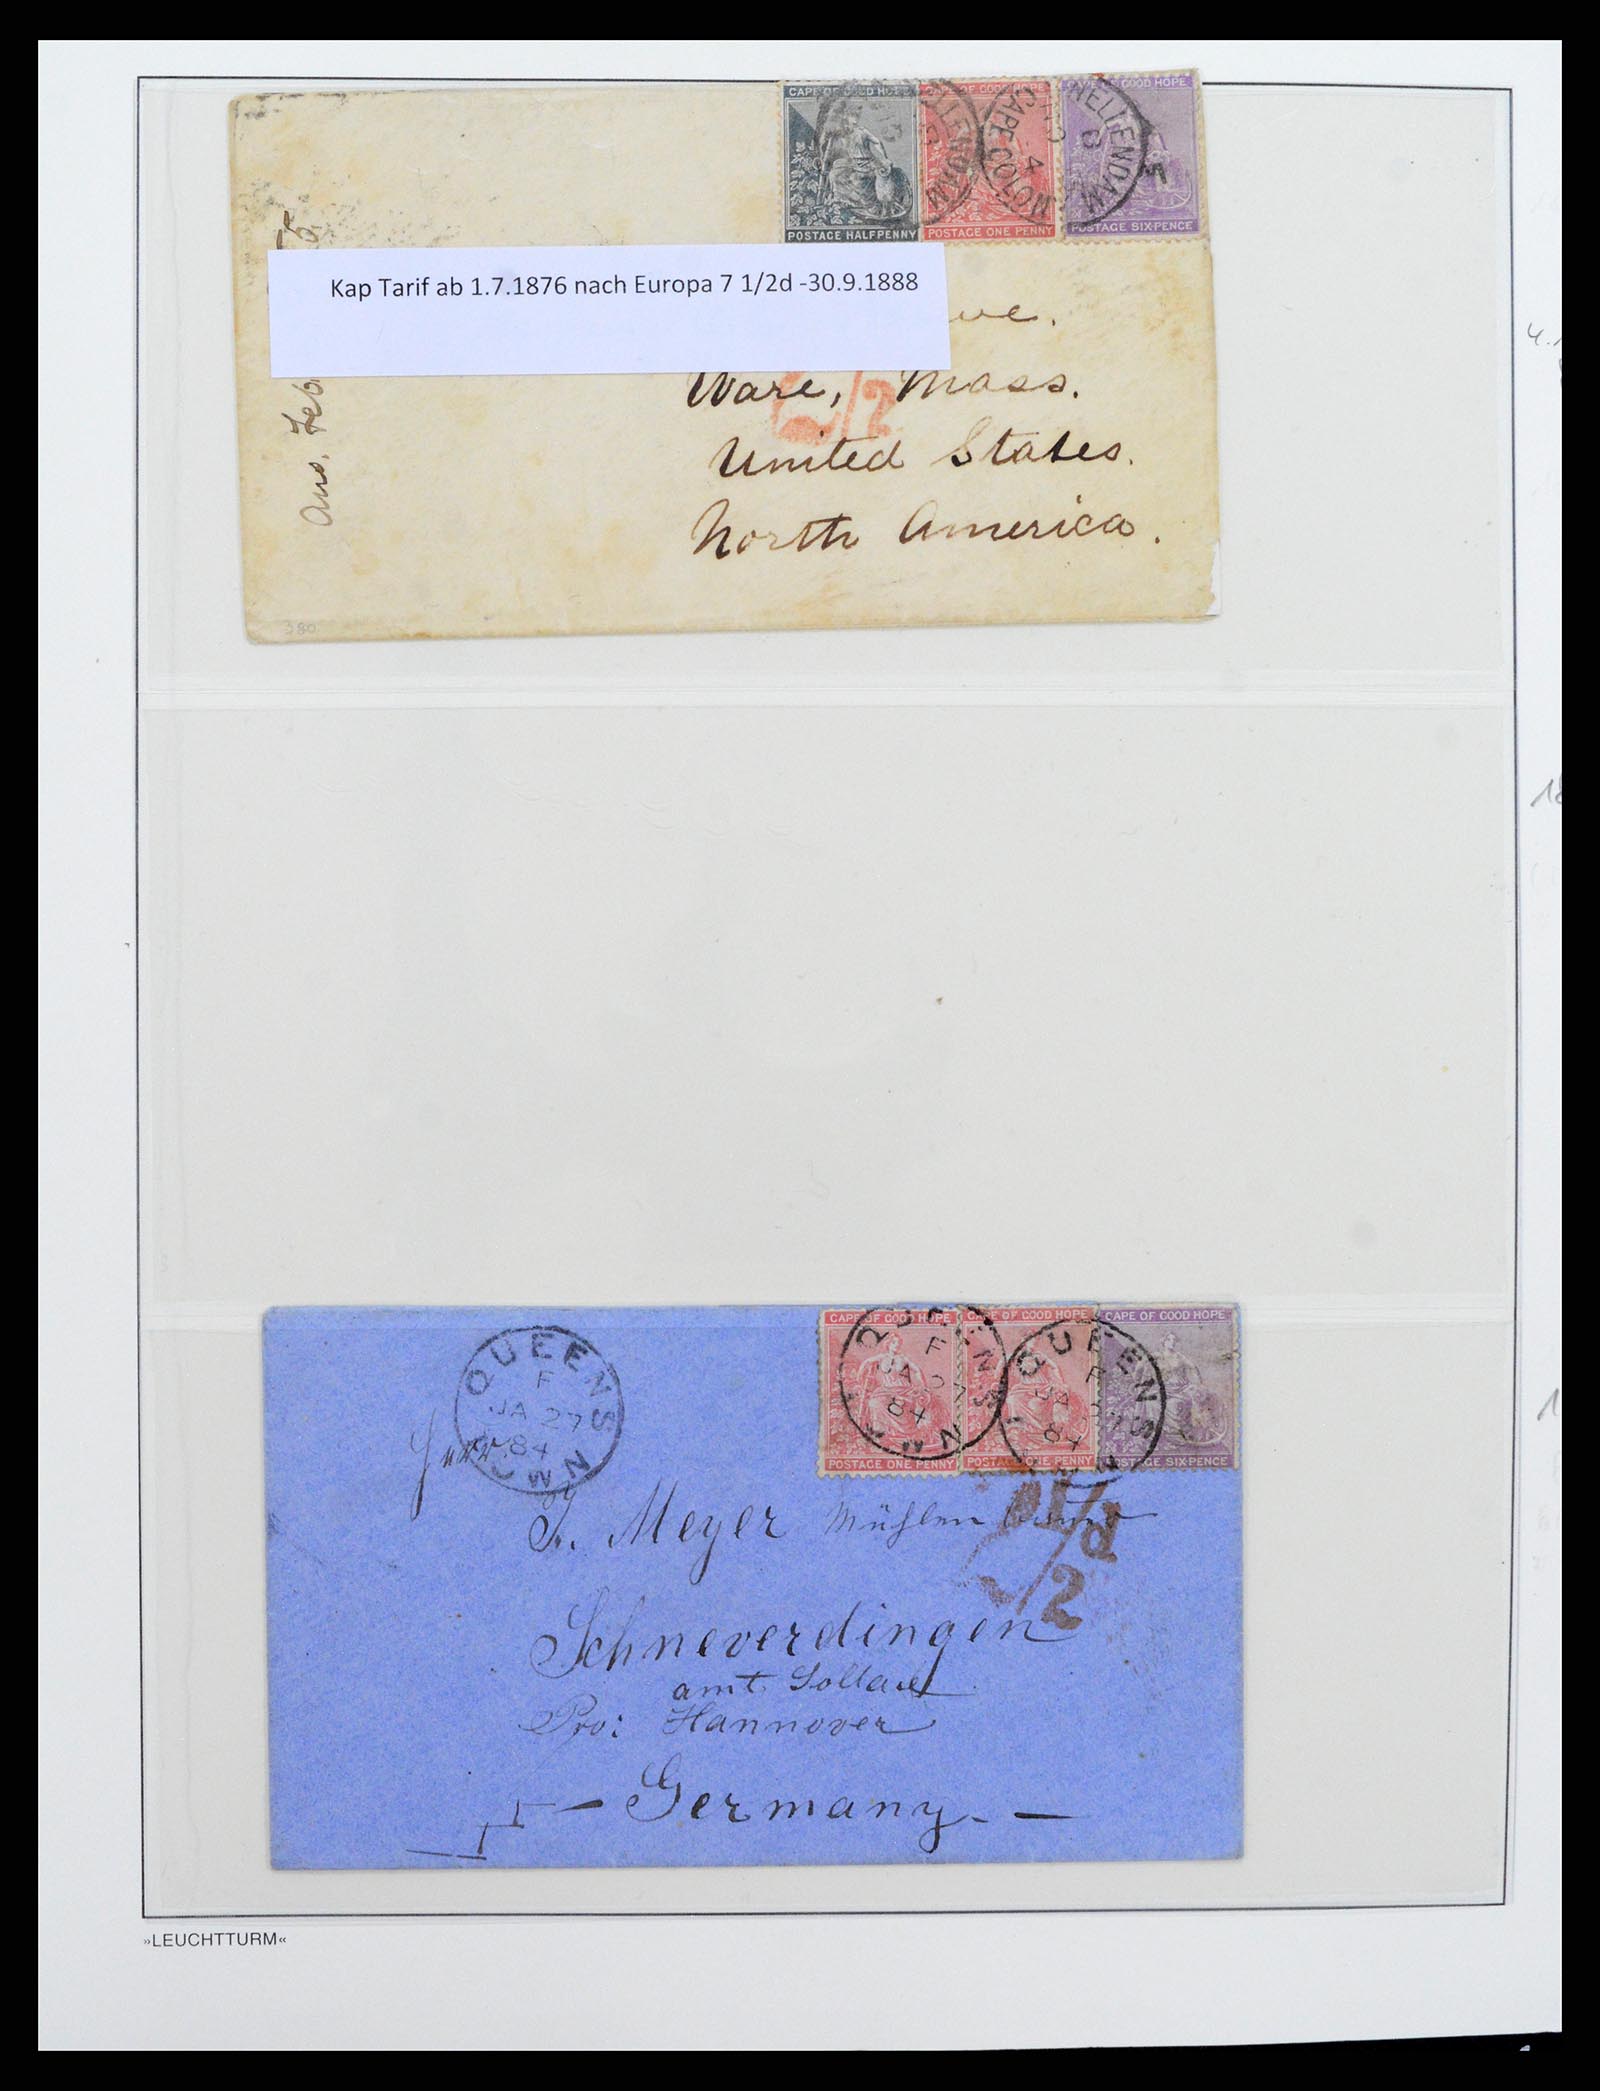 CAPE OF GOOD HOPE
POSTAGE HALFPENNY
CAPE OF GOOD HOPE
POSTAGE ONE PENNY
CAPE OF GOOD HOPE
POSTAGE SIX-PENCE
CAPE COLONY
Kap Tarif ab 1.7.1876 nach Europa 7 1/2d -30.9.1888
Ware, Mass.
United States.
North America.
Ans. Feb
380
CAPE OF GOOD HOPE
POSTAGE ONE PENNY
CAPE OF GOOD HOPE
POSTAGE ONE PENNY
CAPE OF GOOD HOPE
POSTAGE SIX-PENCE
QUEENS
F
JA 27
84
QUEENS
F
JA 27
84
QUEENS
F
JA 27
84
J. Meyer
Schneverdingen
amt Soltau
Pro: Hannover
— Germany. —
»LEUCHTTURM«